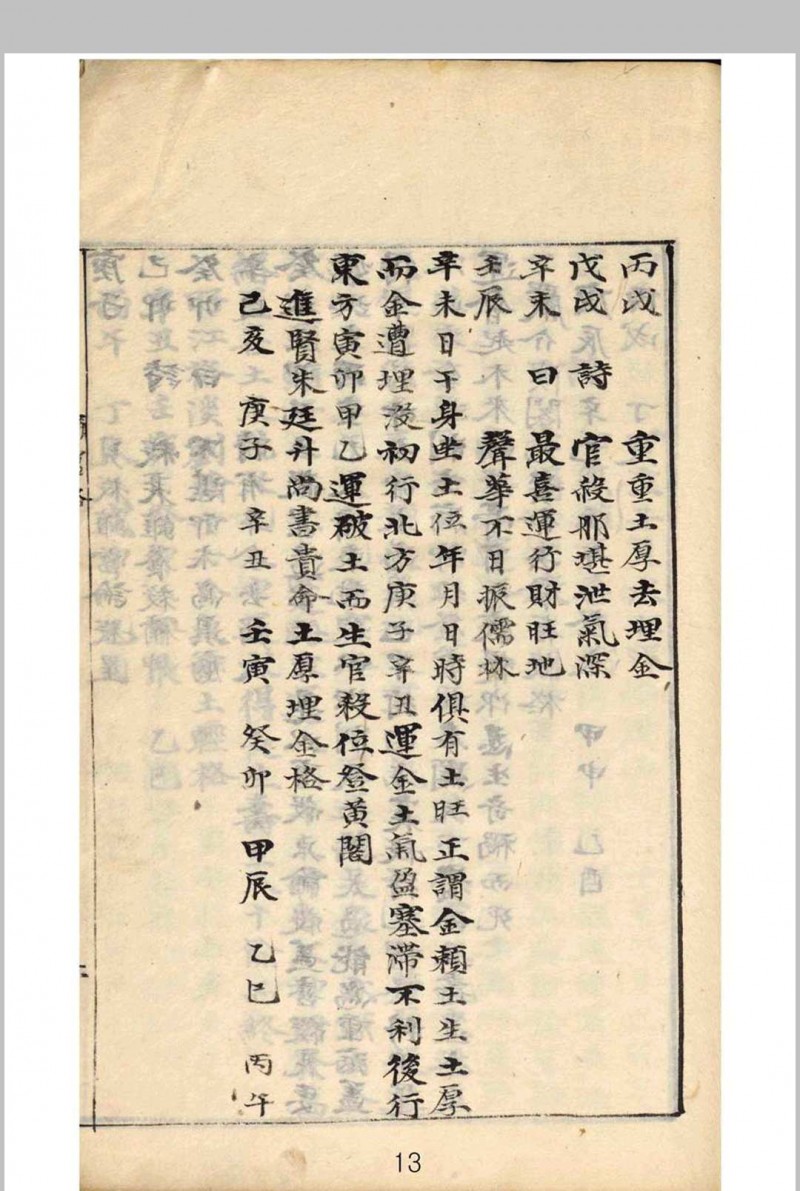 丙戌　　　重重土厚去埋金
戊戌　詩　官殺那堪泄氣深
辛未　曰　最喜運行財旺地
壬辰　　　聲華不日振儒林
辛未日干身坐土位年月日時俱有土旺正謂金賴土生土厚
而金遭埋沒初行北方庚子辛丑運金土氣盈塞滯不利後行
東方寅卯甲乙運破土而生官殺位登黃閣
進賢朱廷升尚書貴命土厚埋金格
己亥　庚子　辛丑　壬寅　癸卯　甲辰　乙巳　丙午
13